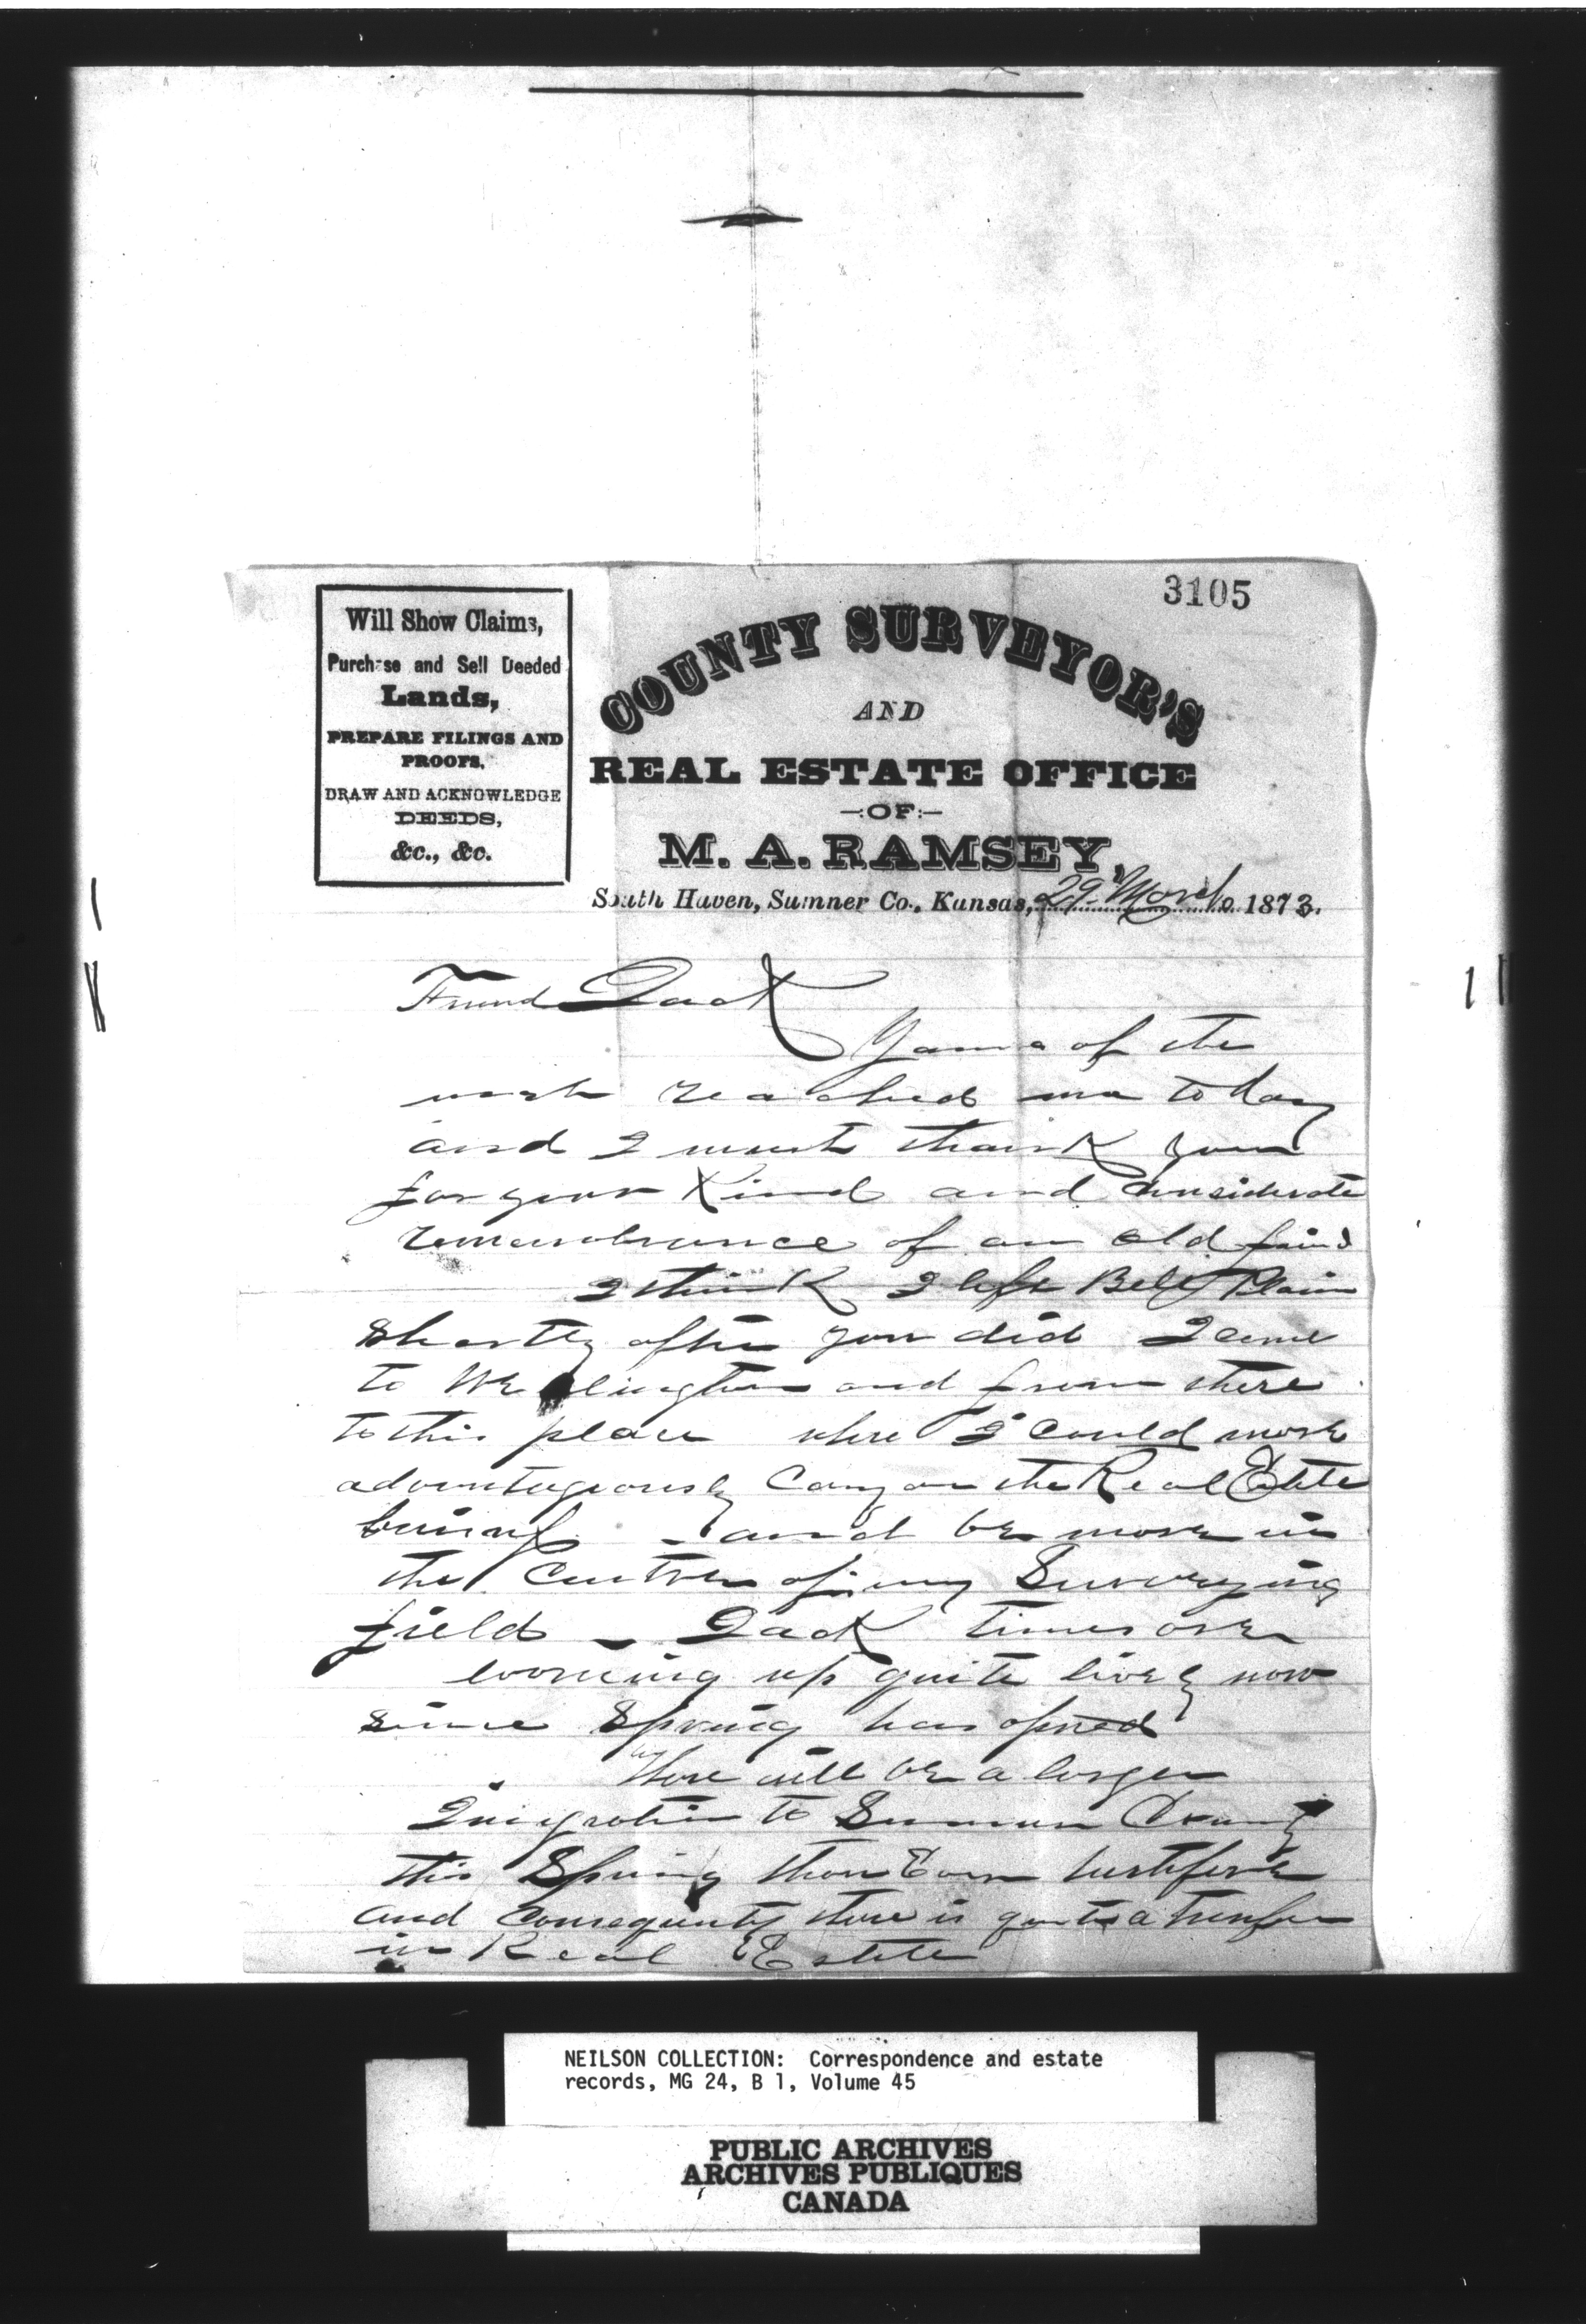 3105
Will Show Claims,
Purchase and Sell Deeded
Lands,
PREPARE FILINGS AND
PROOFS,
DRAW AND ACKNOWLEDGE
DEEDS,
&c., &c.
COUNTY SURVEYOR'S
AND
REAL ESTATE OFFICE
-:OF:-
M. A. RAMSEY,
South Haven, Sumner Co., Kansas, 29" March 1873.
Friend Jack
Yours of the
reached me to day
and I must thank you
for your Kind and Considerate
remembrance of an old friend
I think I left Belle Plain
Shortly after you did I came
to Wellington and from there
to this place where I could more
advantageously Carry on the Real Estate
business - and be more in
the Centre of my Surveying
field - Jack times are
looming up quite lively now
since Spring has opened
There will be a larger
Imigration to Sumner County
this Spring than Ever heretofore
and Consequently there is quite a transfer
in Real Estate
NEILSON COLLECTION: Correspondence and estate
records, MG 24, B 1, Volume 45
PUBLIC ARCHIVES
ARCHIVES PUBLIQUES
CANADA